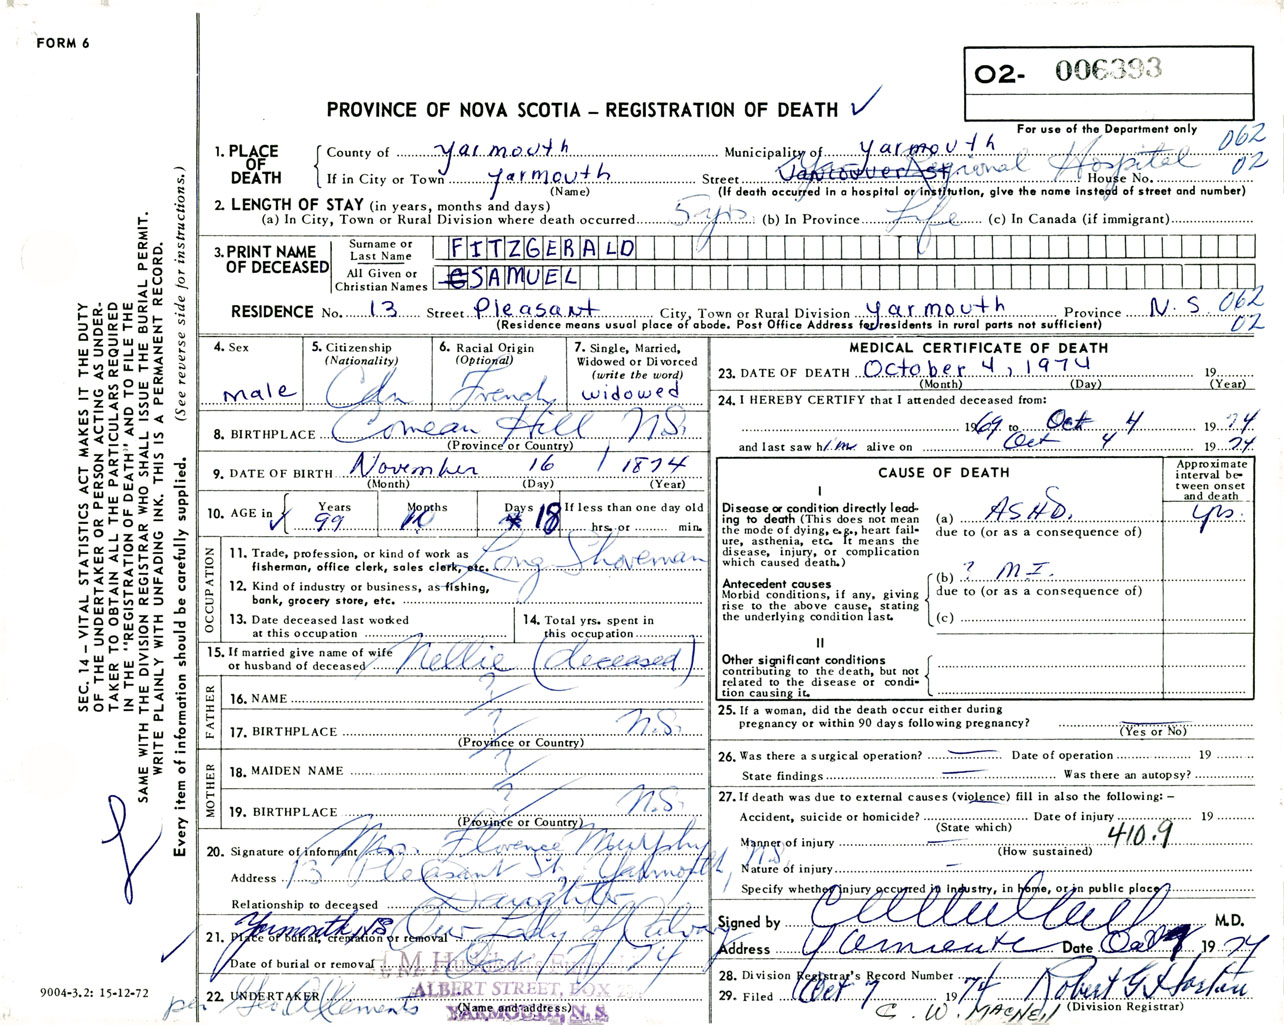 FORM 6
02- 006393
PROVINCE OF NOVA SCOTIA – REGISTRATION OF DEATH ✓
For use of the Department only
062
02
1. PLACE OF DEATH
County of Yarmouth Municipality of Yarmouth
If in City or Town Yarmouth Street Vancouver St Regional Hospital House No.
(Name) (If death occurred in a hospital or institution, give the name instead of street and number)
2. LENGTH OF STAY (in years, months and days)
(a) In City, Town or Rural Division where death occurred 5 yrs (b) In Province Life (c) In Canada (if immigrant)
3. PRINT NAME OF DECEASED
Surname or Last Name FITZGERALD
All Given or Christian Names SAMUEL
RESIDENCE No. 13 Street Pleasant City, Town or Rural Division Yarmouth Province N.S. 062
02
(Residence means usual place of abode. Post Office Address for residents in rural parts not sufficient)
4. Sex
male
5. Citizenship
(Nationality)
Cdn
6. Racial Origin
(Optional)
French
7. Single, Married, Widowed or Divorced
(write the word)
widowed
8. BIRTHPLACE Comeau Hill N.S.
(Province or Country)
9. DATE OF BIRTH November 16 1874
(Month) (Day) (Year)
10. AGE in ✓ Years Months Days If less than one day old
99 10 18 hrs. or min.
OCCUPATION
11. Trade, profession, or kind of work as
fisherman, office clerk, sales clerk, etc. Long Shoreman
12. Kind of industry or business, as fishing,
bank, grocery store, etc.
13. Date deceased last worked
at this occupation
14. Total yrs. spent in
this occupation
15. If married give name of wife
or husband of deceased Nellie (deceased)
FATHER
16. NAME ?
17. BIRTHPLACE ? N.S.
(Province or Country)
MOTHER
18. MAIDEN NAME ?
19. BIRTHPLACE ? N.S.
(Province or Country)
20. Signature of informant Mrs. Florence Murphy
Address 13 Pleasant St., Yarmouth, N.S.
Relationship to deceased Daughter
21. Place of burial, cremation or removal Yarmouth NS Our Lady of Calvary
Date of burial or removal Oct 7/74
22. UNDERTAKER
(Name and address)
ALBERT STREET, BOX
YARMOUTH, N. S.
per Geo Clements
MEDICAL CERTIFICATE OF DEATH
23. DATE OF DEATH October 4, 1974 19
(Month) (Day) (Year)
24. I HEREBY CERTIFY that I attended deceased from:
1969 to Oct 4 1974
and last saw him alive on Oct 4 1974
CAUSE OF DEATH
Approximate interval between onset and death
I
Disease or condition directly leading to death (This does not mean the mode of dying, e.g., heart failure, asthenia, etc. It means the disease, injury, or complication which caused death.)
(a) ASHD. yrs.
due to (or as a consequence of)
Antecedent causes
Morbid conditions, if any, giving rise to the above cause, stating the underlying condition last.
(b) ? M.I.
due to (or as a consequence of)
(c)
II
Other significant conditions
contributing to the death, but not related to the disease or condition causing it.
25. If a woman, did the death occur either during
pregnancy or within 90 days following pregnancy?
(Yes or No)
26. Was there a surgical operation? Date of operation 19
State findings Was there an autopsy?
27. If death was due to external causes (violence) fill in also the following: –
Accident, suicide or homicide? Date of injury 19
(State which) 410.9
Manner of injury
(How sustained)
Nature of injury
Specify whether injury occurred in industry, in home, or in public place
Signed by M.D.
Address Yarmouth Date Oct 1974
28. Division Registrar's Record Number
29. Filed Oct 7 1974 Robert G Horton
C. W. MACNEIL (Division Registrar)
SEC. 14 – VITAL STATISTICS ACT MAKES IT THE DUTY
OF THE UNDERTAKER OR PERSON ACTING AS UNDER-
TAKER TO OBTAIN ALL THE PARTICULARS REQUIRED
IN THE "REGISTRATION OF DEATH" AND TO FILE THE
SAME WITH THE DIVISION REGISTRAR WHO SHALL ISSUE THE BURIAL PERMIT.
WRITE PLAINLY WITH UNFADING INK. THIS IS A PERMANENT RECORD.
Every item of information should be carefully supplied. (See reverse side for instructions.)
9004-3.2: 15-12-72